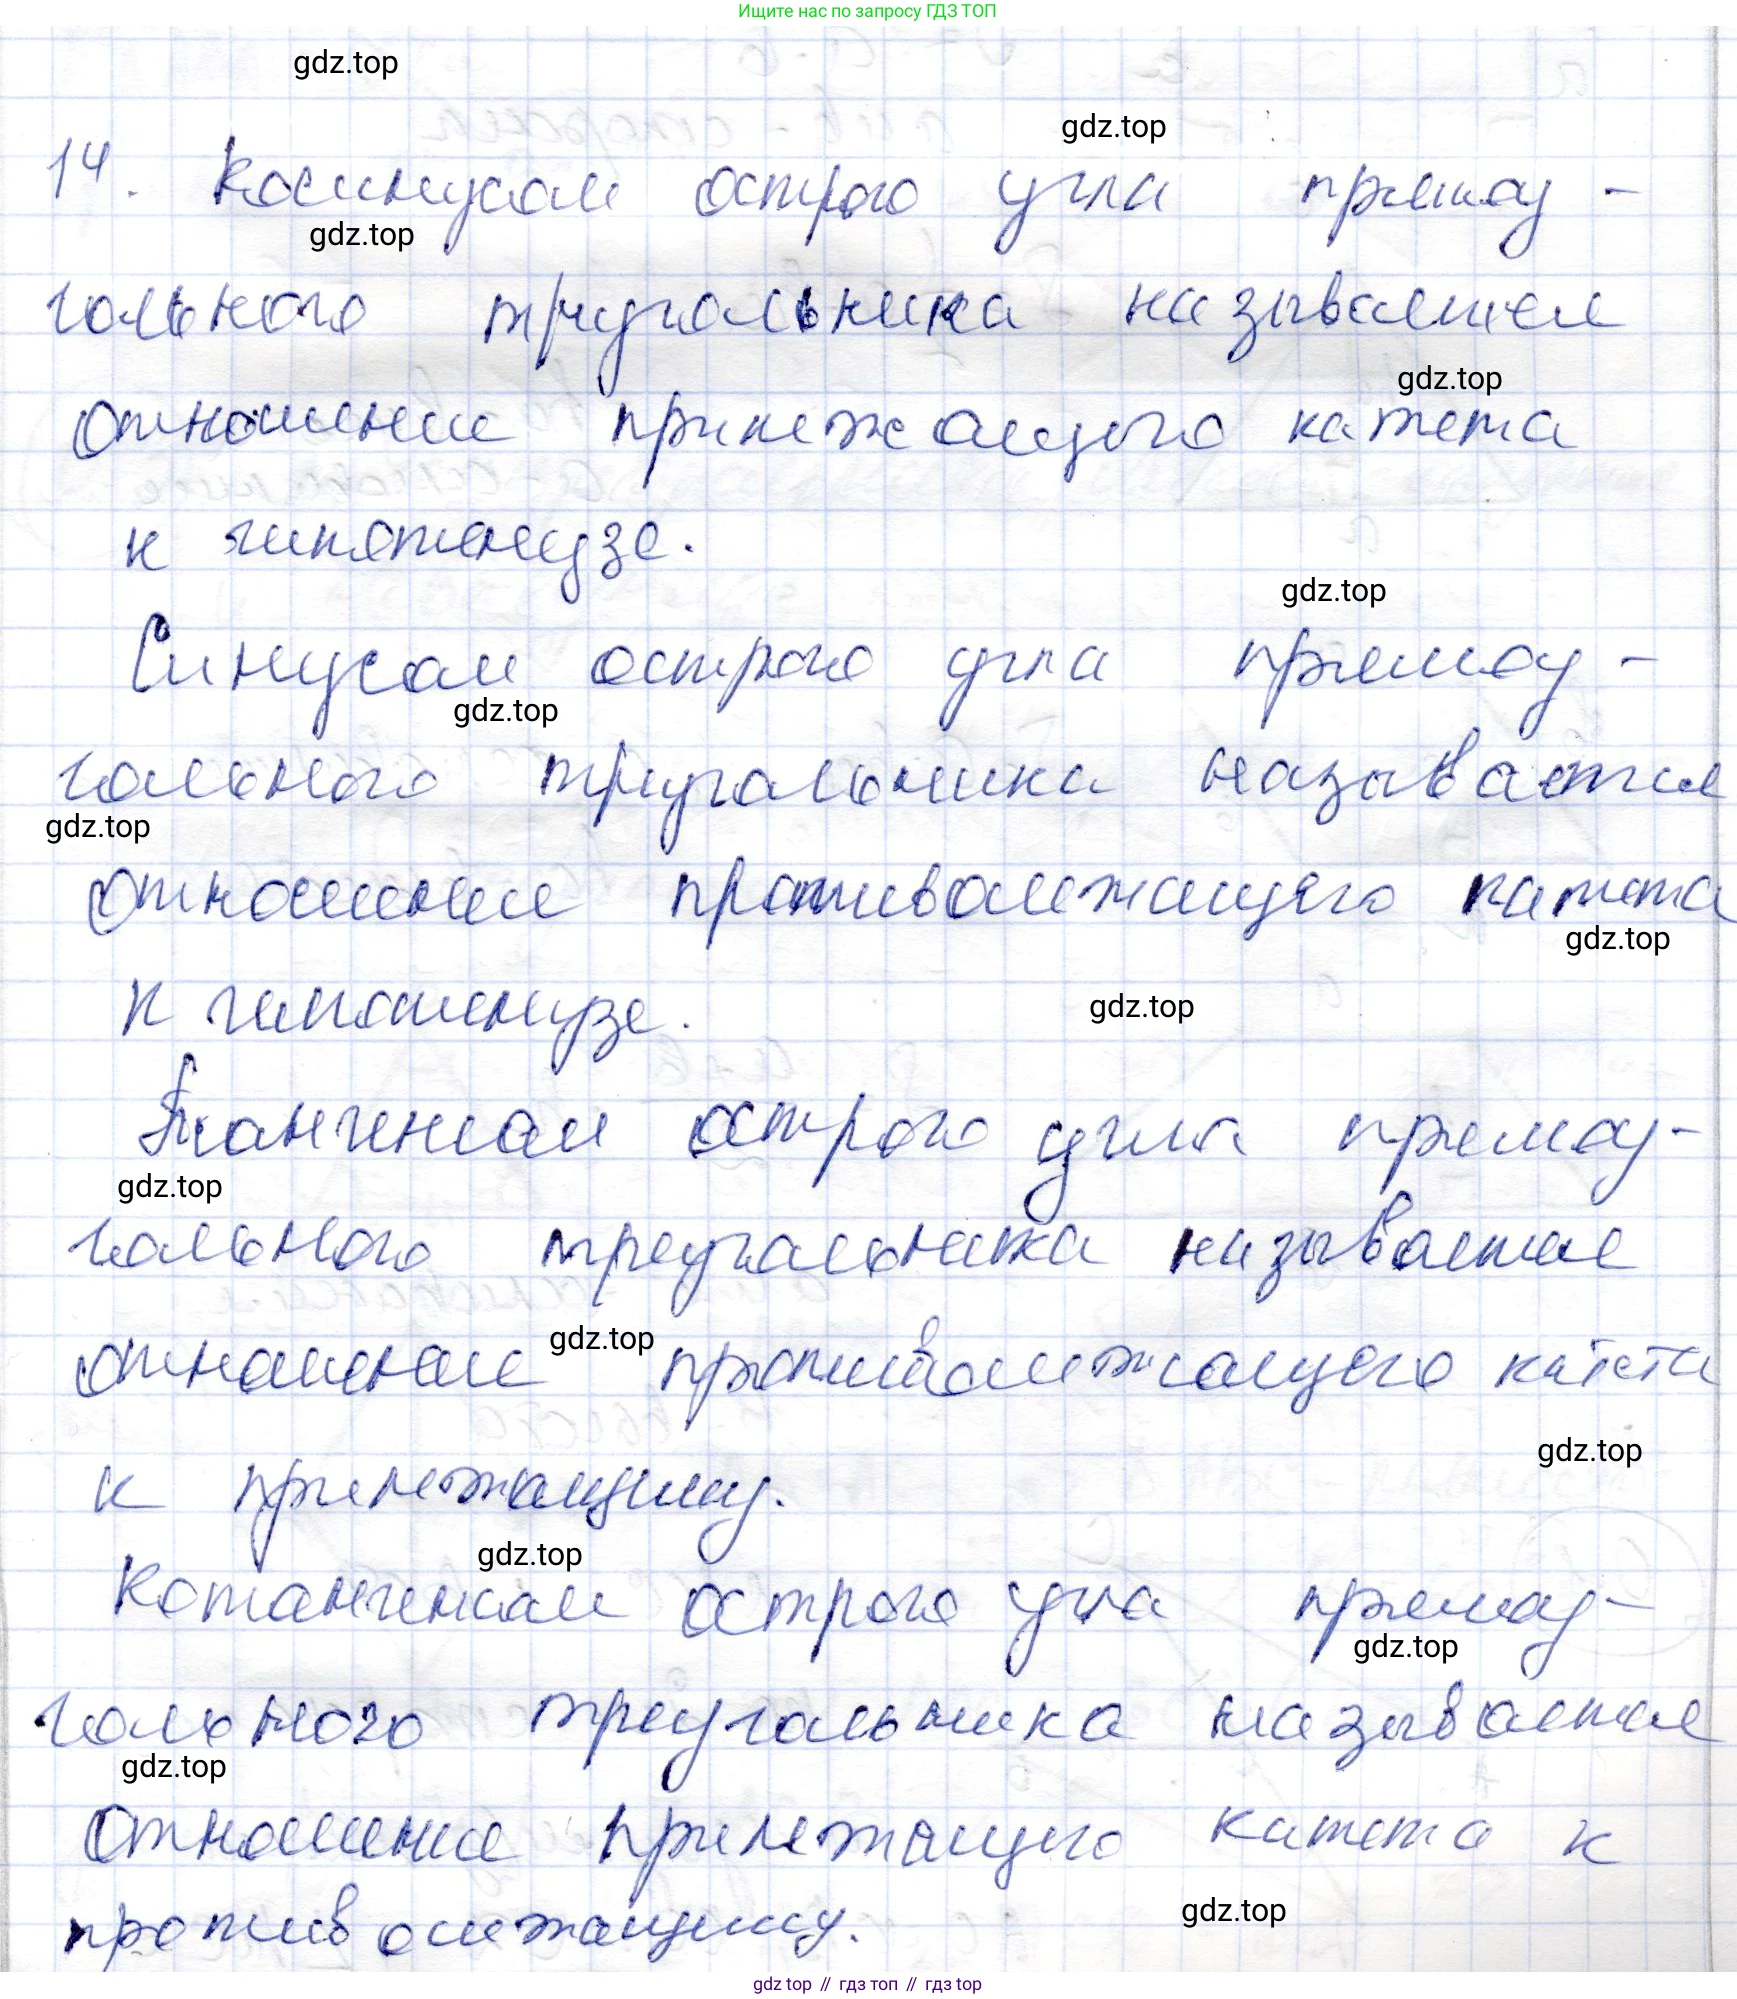 Ищите нас по запросу ГДЗ ТОП
gdz.top
gdz.top
14. Косинусом острого угла прямоу-
gdz.top
гольного треугольника называется
gdz.top
отношение прилежащего катета
к гипотенузе.
gdz.top
Синусом острого угла прямоу-
gdz.top
гольного треугольника называется
gdz.top
отношение противолежащего катета
gdz.top
к гипотенузе.
gdz.top
Тангенсом острого угла прямоу-
gdz.top
гольного треугольника называется
gdz.top
отношение противолежащего катета
gdz.top
к прилежащему.
gdz.top
Котангенсом острого угла прямоу-
gdz.top
гольного треугольника называется
gdz.top
отношение прилежащего катета к
gdz.top
противолежащему.
gdz top // гдз топ // гдз top